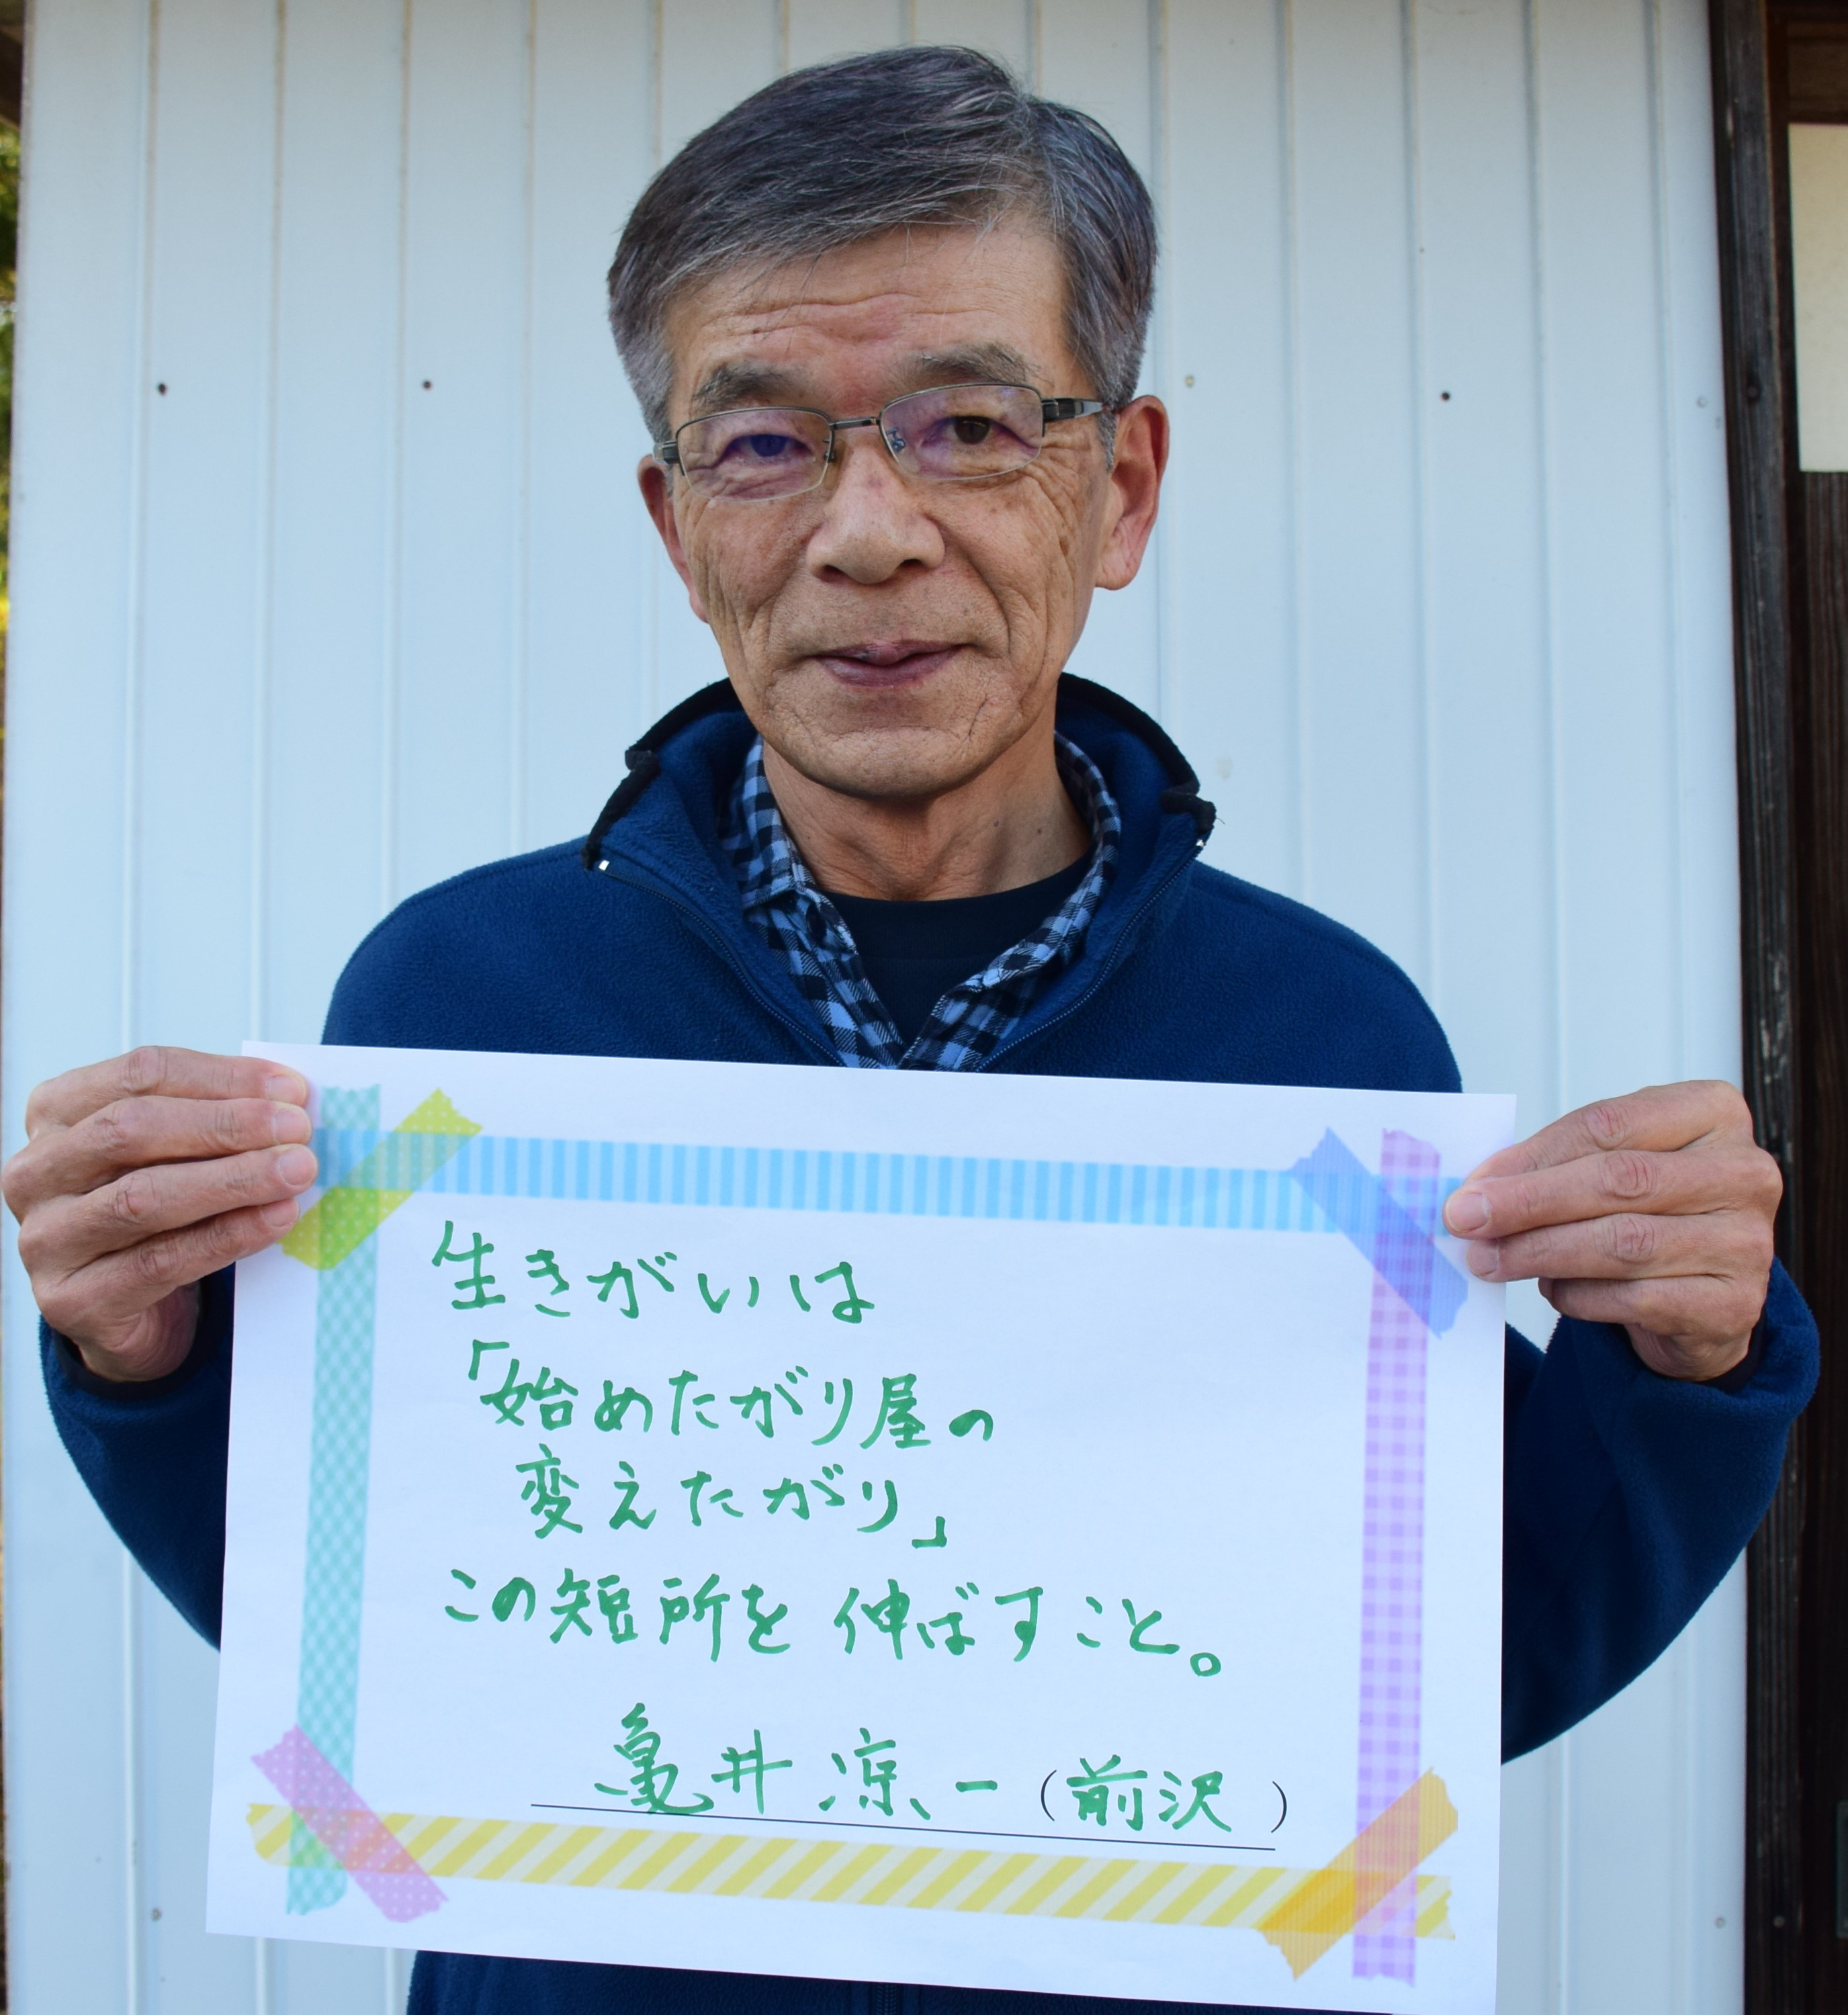 生きがいは
「始めたがり屋の
変えたがり」
この短所を伸ばすこと。
亀井 凉一（前沢）